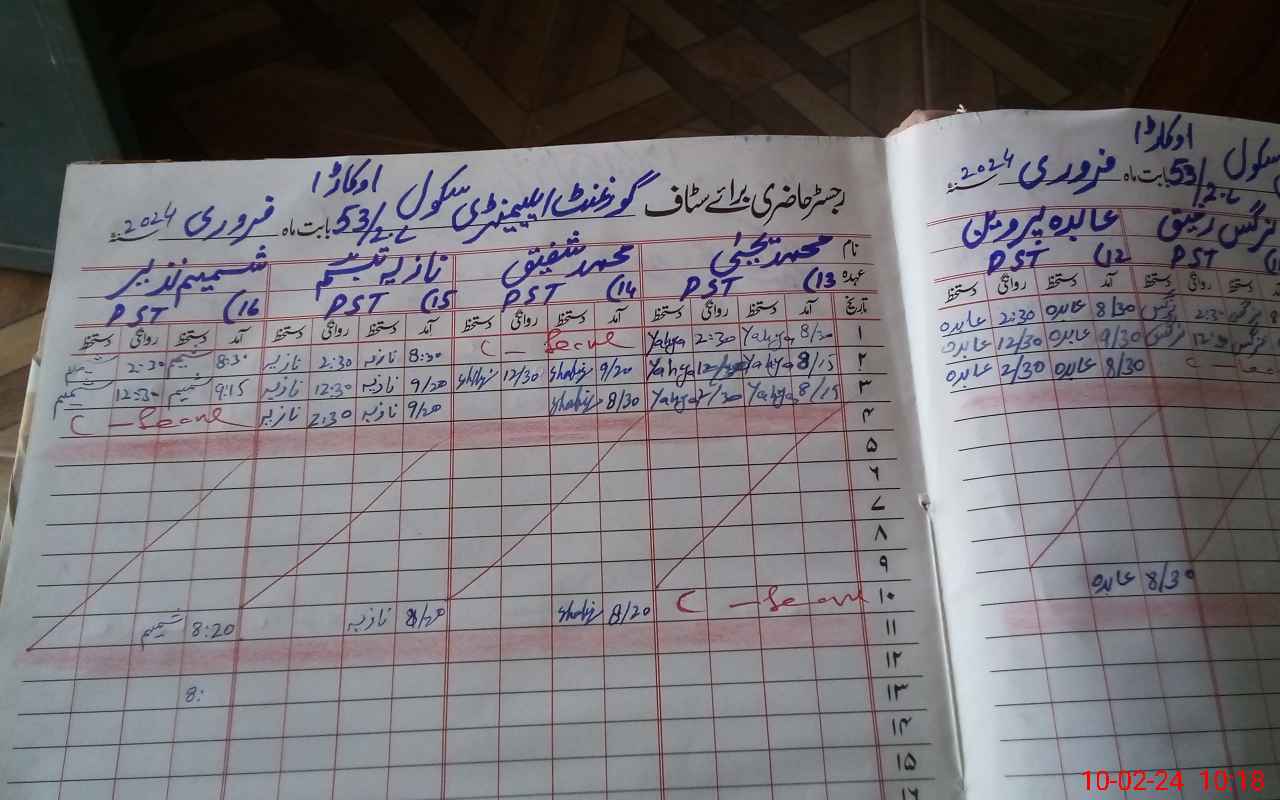 رجسٹر حاضری برائے سٹاف گورنمنٹ ایلیمنٹری سکول 53/2-L اوکاڑا بابت ماہ فروری سنہ 2024
نام محمد یحییٰ محمد شفیق نازیہ تبسم شمیم نذیر
عہدہ (13 PST (14 PST (15 PST (16 PST
تاریخ آمد دستخط روانگی دستخط آمد دستخط روانگی دستخط آمد دستخط روانگی دستخط آمد دستخط روانگی دستخط
۱ 8/20 Yahya 2:30 Yahya C - Leave 8:30 نازیہ 2:30 نازیہ 8:30 شمیم 2:30 شمیم
۲ 8/15 Yahya Yahya 9/20 Shafiq 12/30 Shafiq 9/20 نازیہ 12:30 نازیہ 9:15 شمیم 12:30 شمیم
۳ 8/15 Yahya Yahya 8/30 Shafiq 9/20 نازیہ 2:30 نازیہ C - Leave
۴
۵
۶
۷
۸
۹
۱۰ C - Leave 8/20 Shafiq 8/20 نازیہ 8:20 شمیم
۱۱
۱۲
۱۳ 8:
۱۴
۱۵
۱۶
سکول 53/2-L اوکاڑا بابت ماہ فروری سنہ 2024
نرگس رفیق عابدہ پروین
PST (12 PST
آمد دستخط روانگی دستخط آمد دستخط روانگی دستخط
نرگس 2:30 نرگس 8/30 عابدہ 2:30 عابدہ
نرگس 12:30 نرگس 9/30 عابدہ 12/30 عابدہ
C - Lea 8/30 عابدہ 2/30 عابدہ
8/30 عابدہ
10-02-24 10:18